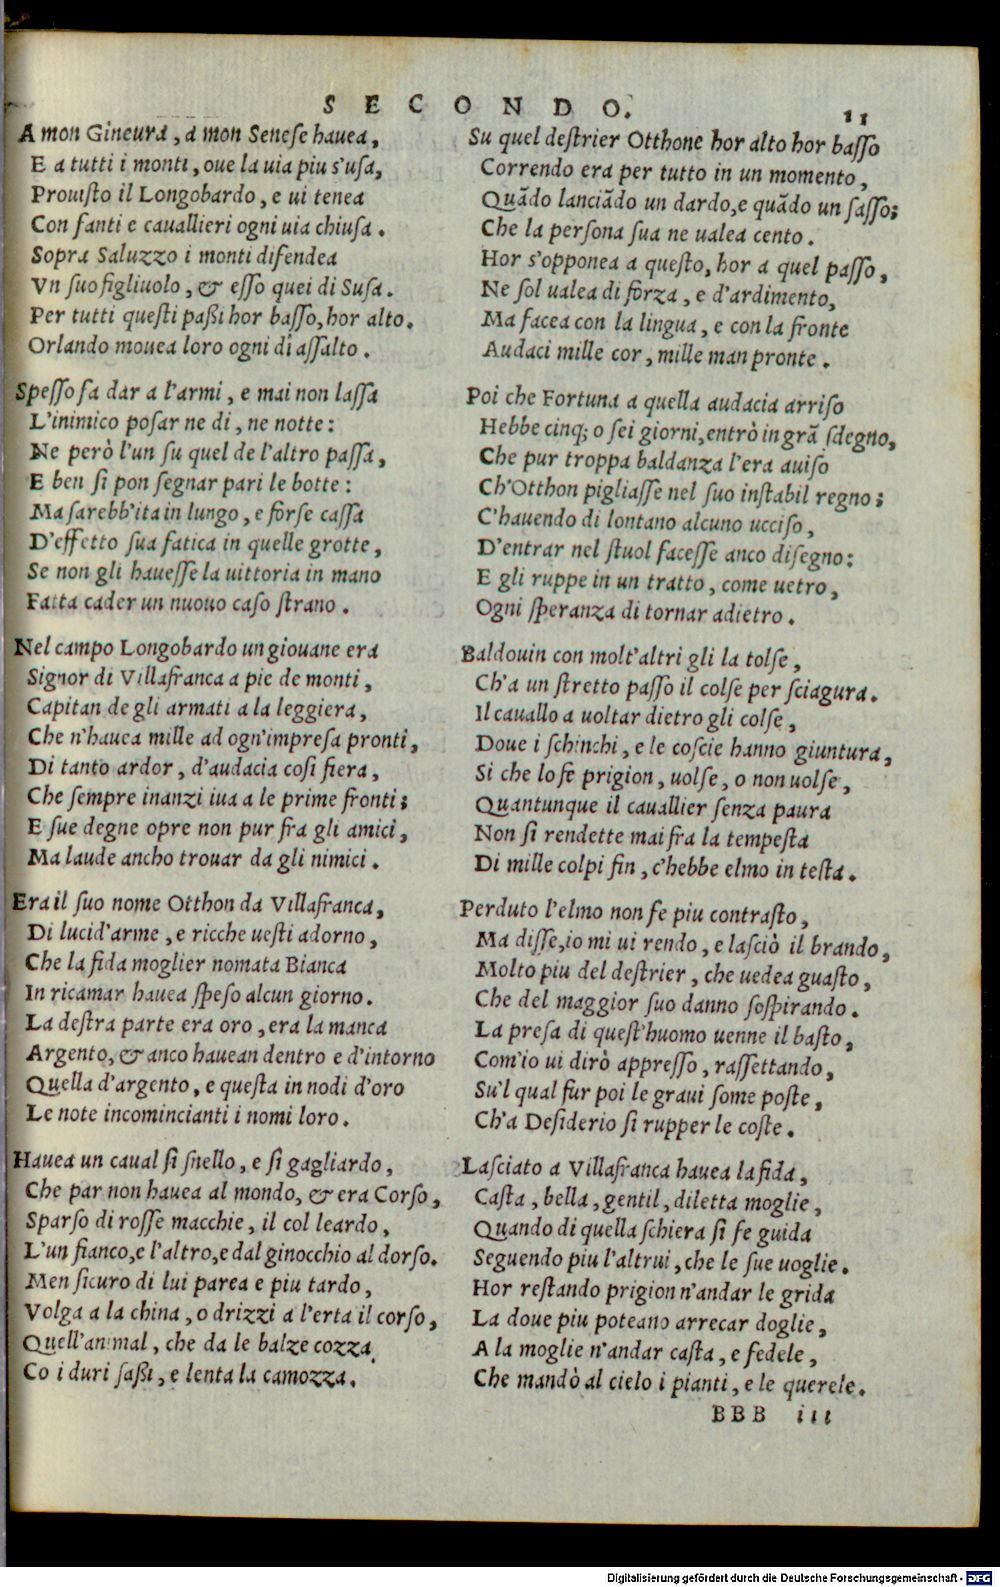 SECONDO. 11
A mon Gineura, a mon Senese hauea,
E a tutti i monti, oue la uia piu s'usa,
Prouisto il Longobardo, e ui tenea
Con fanti e cauallieri ogni uia chiusa.
Sopra Saluzzo i monti difendea
Vn suo figliuolo, & esso quei di Susa.
Per tutti questi paßi hor basso, hor alto.
Orlando mouea loro ogni dì assalto.
Spesso fa dar a l'armi, e mai non lassa
L'inimico posar ne di, ne notte:
Ne però l'un su quel de l'altro passa,
E ben si pon segnar pari le botte:
Ma sarebb'ita in lungo, e forse cassa
D'effetto sua fatica in quelle grotte,
Se non gli hauesse la uittoria in mano
Fatta cader un nuouo caso strano.
Nel campo Longobardo un giouane era
Signor di Villafranca a pie de monti,
Capitan de gli armati a la leggiera,
Che n'hauea mille ad ogn'impresa pronti,
Di tanto ardor, d'audacia cosi fiera,
Che sempre inanzi iua a le prime fronti;
E sue degne opre non pur fra gli amici,
Ma laude ancho trouar da gli nimici.
Era il suo nome Otthon da Villafranca,
Di lucid'arme, e ricche uesti adorno,
Che la fida moglier nomata Bianca
In ricamar hauea speso alcun giorno.
La destra parte era oro, era la manca
Argento, & anco hauean dentro e d'intorno
Quella d'argento, e questa in nodi d'oro
Le note incomincianti i nomi loro.
Hauea un caual sì snello, e sì gagliardo,
Che par non hauea al mondo, & era Corso,
Sparso di rosse macchie, il col leardo,
L'un fianco,e l'altro,e dal ginocchio al dorso.
Men sicuro di lui parea e piu tardo,
Volga a la china, o drizzi a l'erta il corso,
Quell'animal, che da le balze cozza
Co i duri saßi, e lenta la camozza.
Su quel destrier Otthone hor alto hor basso
Correndo era per tutto in un momento,
Quãdo lanciãdo un dardo,e quãdo un sasso;
Che la persona sua ne ualea cento.
Hor s'opponea a questo, hor a quel passo,
Ne sol ualea di forza, e d'ardimento,
Ma facea con la lingua, e con la fronte
Audaci mille cor, mille man pronte.
Poi che Fortuna a quella audacia arriso
Hebbe cinq; o sei giorni,entrò in grã sdegno,
Che pur troppa baldanza l'era auiso
Ch'Otthon pigliasse nel suo instabil regno;
C'hauendo di lontano alcuno ucciso,
D'entrar nel stuol facesse anco disegno:
E gli ruppe in un tratto, come uetro,
Ogni speranza di tornar adietro.
Baldouin con molt'altri gli la tolse,
Ch'a un stretto passo il colse per sciagura.
Il cauallo a uoltar dietro gli colse,
Doue i schinchi, e le coscie hanno giuntura,
Si che lo fe prigion, uolse, o non uolse,
Quantunque il cauallier senza paura
Non si rendette mai fra la tempesta
Di mille colpi fin, c'hebbe elmo in testa.
Perduto l'elmo non fe piu contrasto,
Ma disse,io mi ui rendo, e lasciò il brando,
Molto piu del destrier, che uedea guasto,
Che del maggior suo danno sospirando.
La presa di quest'huomo uenne il basto,
Com'io ui dirò appresso, rassettando,
Su'l qual fur poi le graui some poste,
Ch'a Desiderio si rupper le coste.
Lasciato a Villafranca hauea la fida,
Casta, bella, gentil, diletta moglie,
Quando di quella schiera si fe guida
Seguendo piu l'altrui, che le sue uoglie.
Hor restando prigion n'andar le grida
La doue piu poteano arrecar doglie,
A la moglie n'andar casta, e fedele,
Che mandò al cielo i pianti, e le querele.
BBB iii
Digitalisierung gefördert durch die Deutsche Forschungsgemeinschaft - DFG